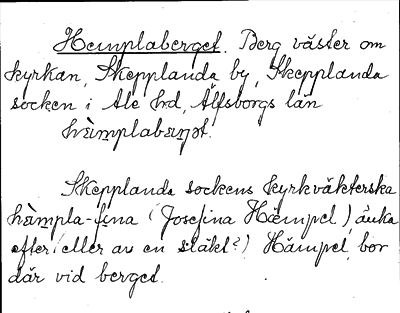 Hemplaberget. Berg väster om
kyrkan, Skepplanda by, Skepplanda
socken i Ale hrd, Älfsborgs län
Skepplanda sockens kyrkväkterska
hämpla-fina (Josefina Hämpel) änka
efter (eller av en släkt?) Hämpel, bor
där vid berget.